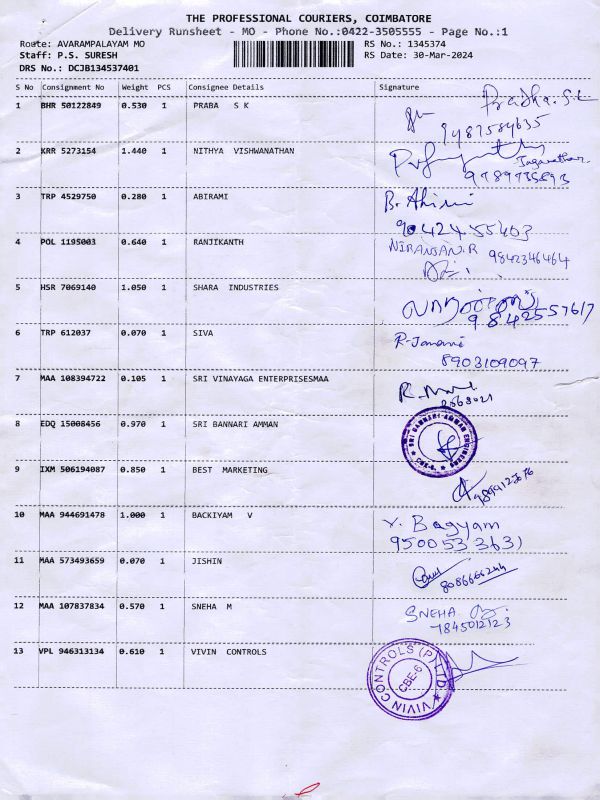 THE PROFESSIONAL COURIERS, COIMBATORE
Delivery Runsheet - MO - Phone No.:0422-3505555 - Page No.:1
Route: AVARAMPALAYAM MO RS No.: 1345374
Staff: P.S. SURESH RS Date: 30-Mar-2024
DRS No.: DCJB134537401
S No Consignment No Weight PCS Consignee Details Signature
1 BHR 50122849 0.530 1 PRABA S K
2 KRR 5273154 1.440 1 NITHYA VISHWANATHAN
3 TRP 4529750 0.280 1 ABIRAMI
90424 55403
4 POL 1195003 0.640 1 RANJIKANTH NIRANJAN.R 9842346464
5 HSR 7069140 1.050 1 SHARA INDUSTRIES
9842557617
6 TRP 612037 0.070 1 SIVA R-Janani
8903109097
7 MAA 108394722 0.105 1 SRI VINAYAGA ENTERPRISESMAA
8 EDQ 15008456 0.970 1 SRI BANNARI AMMAN
SRI BANNARI AMMAN
9 IXM 506194087 0.850 1 BEST MARKETING
10 MAA 944691478 1.000 1 BACKIYAM V V. Bagyam
9500533631
11 MAA 573493659 0.070 1 JISHIN
8086666244
12 MAA 107837834 0.570 1 SNEHA M SNEHA
7845012123
13 VPL 946313134 0.610 1 VIVIN CONTROLS
VIVIN CONTROLS (P) LTD
CBE-6